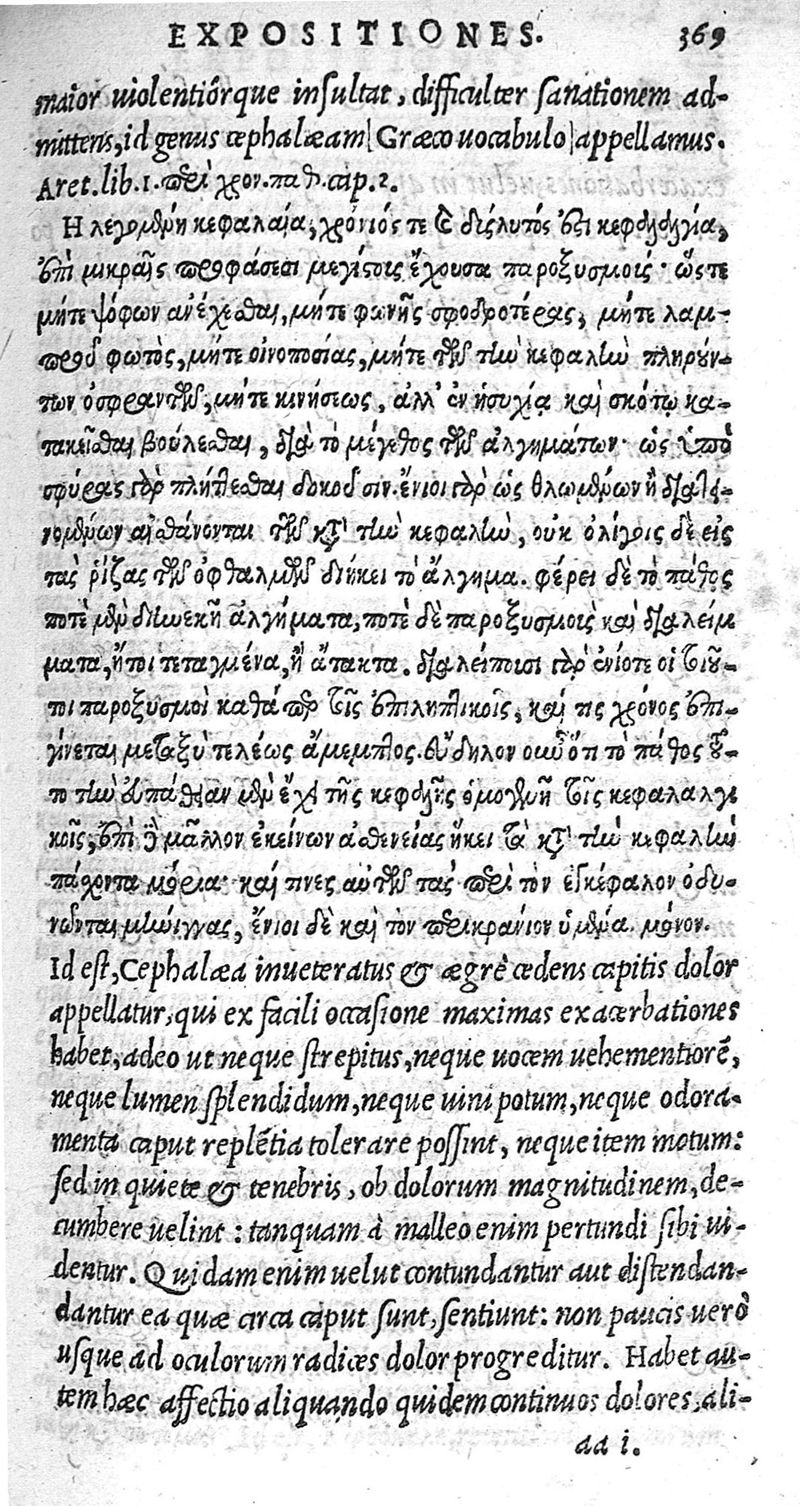 EXPOSITIONES. 369
maior uiolentiórque insultat, difficulter sanationem ad-
mittens, id genus cephalæam (Græco uocabulo) appellamus.
Aret. lib. 1. περὶ χρον. παθ. cap. 2.
Η λεγομένη κεφαλαία, χρόνιός τε καὶ δύςλυτός ἐστι κεφαλαλγία,
ἐπὶ μικραῖς προφάσεσι μεγίστοις ἔχουσα παροξυσμοὶς· ὥςτε
μήτε ψόφων ανέχεσθαι, μήτε φωνῆς σφοδροτέρας, μήτε λαμ-
προῦ φωτὸς, μήτε οἰνοποσίας, μήτε τῶν τὴν κεφαλὴν πληρούν-
των ὀσφραντῶν, μήτε κινήσεως, ἀλλ' ἐν ἡσυχία καὶ σκότῳ κα-
τακεῖσθαι βούλεσθαι, διὰ τὸ μέγεθος τῶν ἀλγημάτων· ὡς ὑπὸ
σφύρας γὰρ πλήττεσθαι δοκοῦσιν. ἔνιοι γὰρ ὡς θλωμένων ἢ διατει-
νομένων αἰσθάνονται τῶν κατὰ τὴν κεφαλὴν, ουκ ὀλίγοις δὲ εἰς
τὰς ῥίζας τῶν ὀφθαλμῶν διήκει τὸ ἄλγημα. φέρει δὲ τὸ πάθος
ποτὲ μὲν διηνεκῆ ἀλγήματα, ποτὲ δὲ παροξυσμοὶς καὶ διαλείμ
ματα, ἤτοι τεταγμένα, ἢ ἄτακτα. διαλείπουσι γὰρ ἐνίοτε οἱ τοιοῦ-
τοι παροξυσμοὶ καθάπερ τοῖς ἐπιληπτικοῖς, καί τις χρόνος ἐπι-
γίνεται μεταξὺ τελέως ἄμεμπτος. εὔδηλον οὖν ὅτι τὸ πάθος τοῦ-
το τὴν εὐπάθειαν μὲν ἔχει τῆς κεφαλῆς ὁμογενῆ τοῖς κεφαλαλγι
κοῖς, ἐπὶ δὲ μᾶλλον ἐκείνων ἀσθενείας ἥκει τὰ κατὰ τὴν κεφαλὴν
πάσχοντα μόρια· καί τινες αὐτῶν τὰς περὶ τὸν εγκέφαλον ὀδυ-
νῶνται μήνιγγας, ἔνιοι δὲ καὶ τὸν περικράνιον ὑμένα μόνον.
Id est, Cephalæa inueteratus & ægrè cedens capitis dolor
appellatur, qui ex facili occasione maximas exacerbationes
habet, adeo ut neque strepitus, neque uocem uehementiorẽ,
neque lumen splendidum, neque uini potum, neque odora-
menta caput replẽtia tolerare possint, neque item motum:
sed in quiete & tenebris, ob dolorum magnitudinem, de-
cumbere uelint: tanquam à malleo enim pertundi sibi ui-
dentur. Quidam enim uelut contundantur aut distendan-
dantur ea quæ circa caput sunt, sentiunt: non paucis uerò
usque ad oculorum radices dolor progreditur. Habet au-
tem hæc affectio aliquando quidem continuos dolores, ali-
aa i.